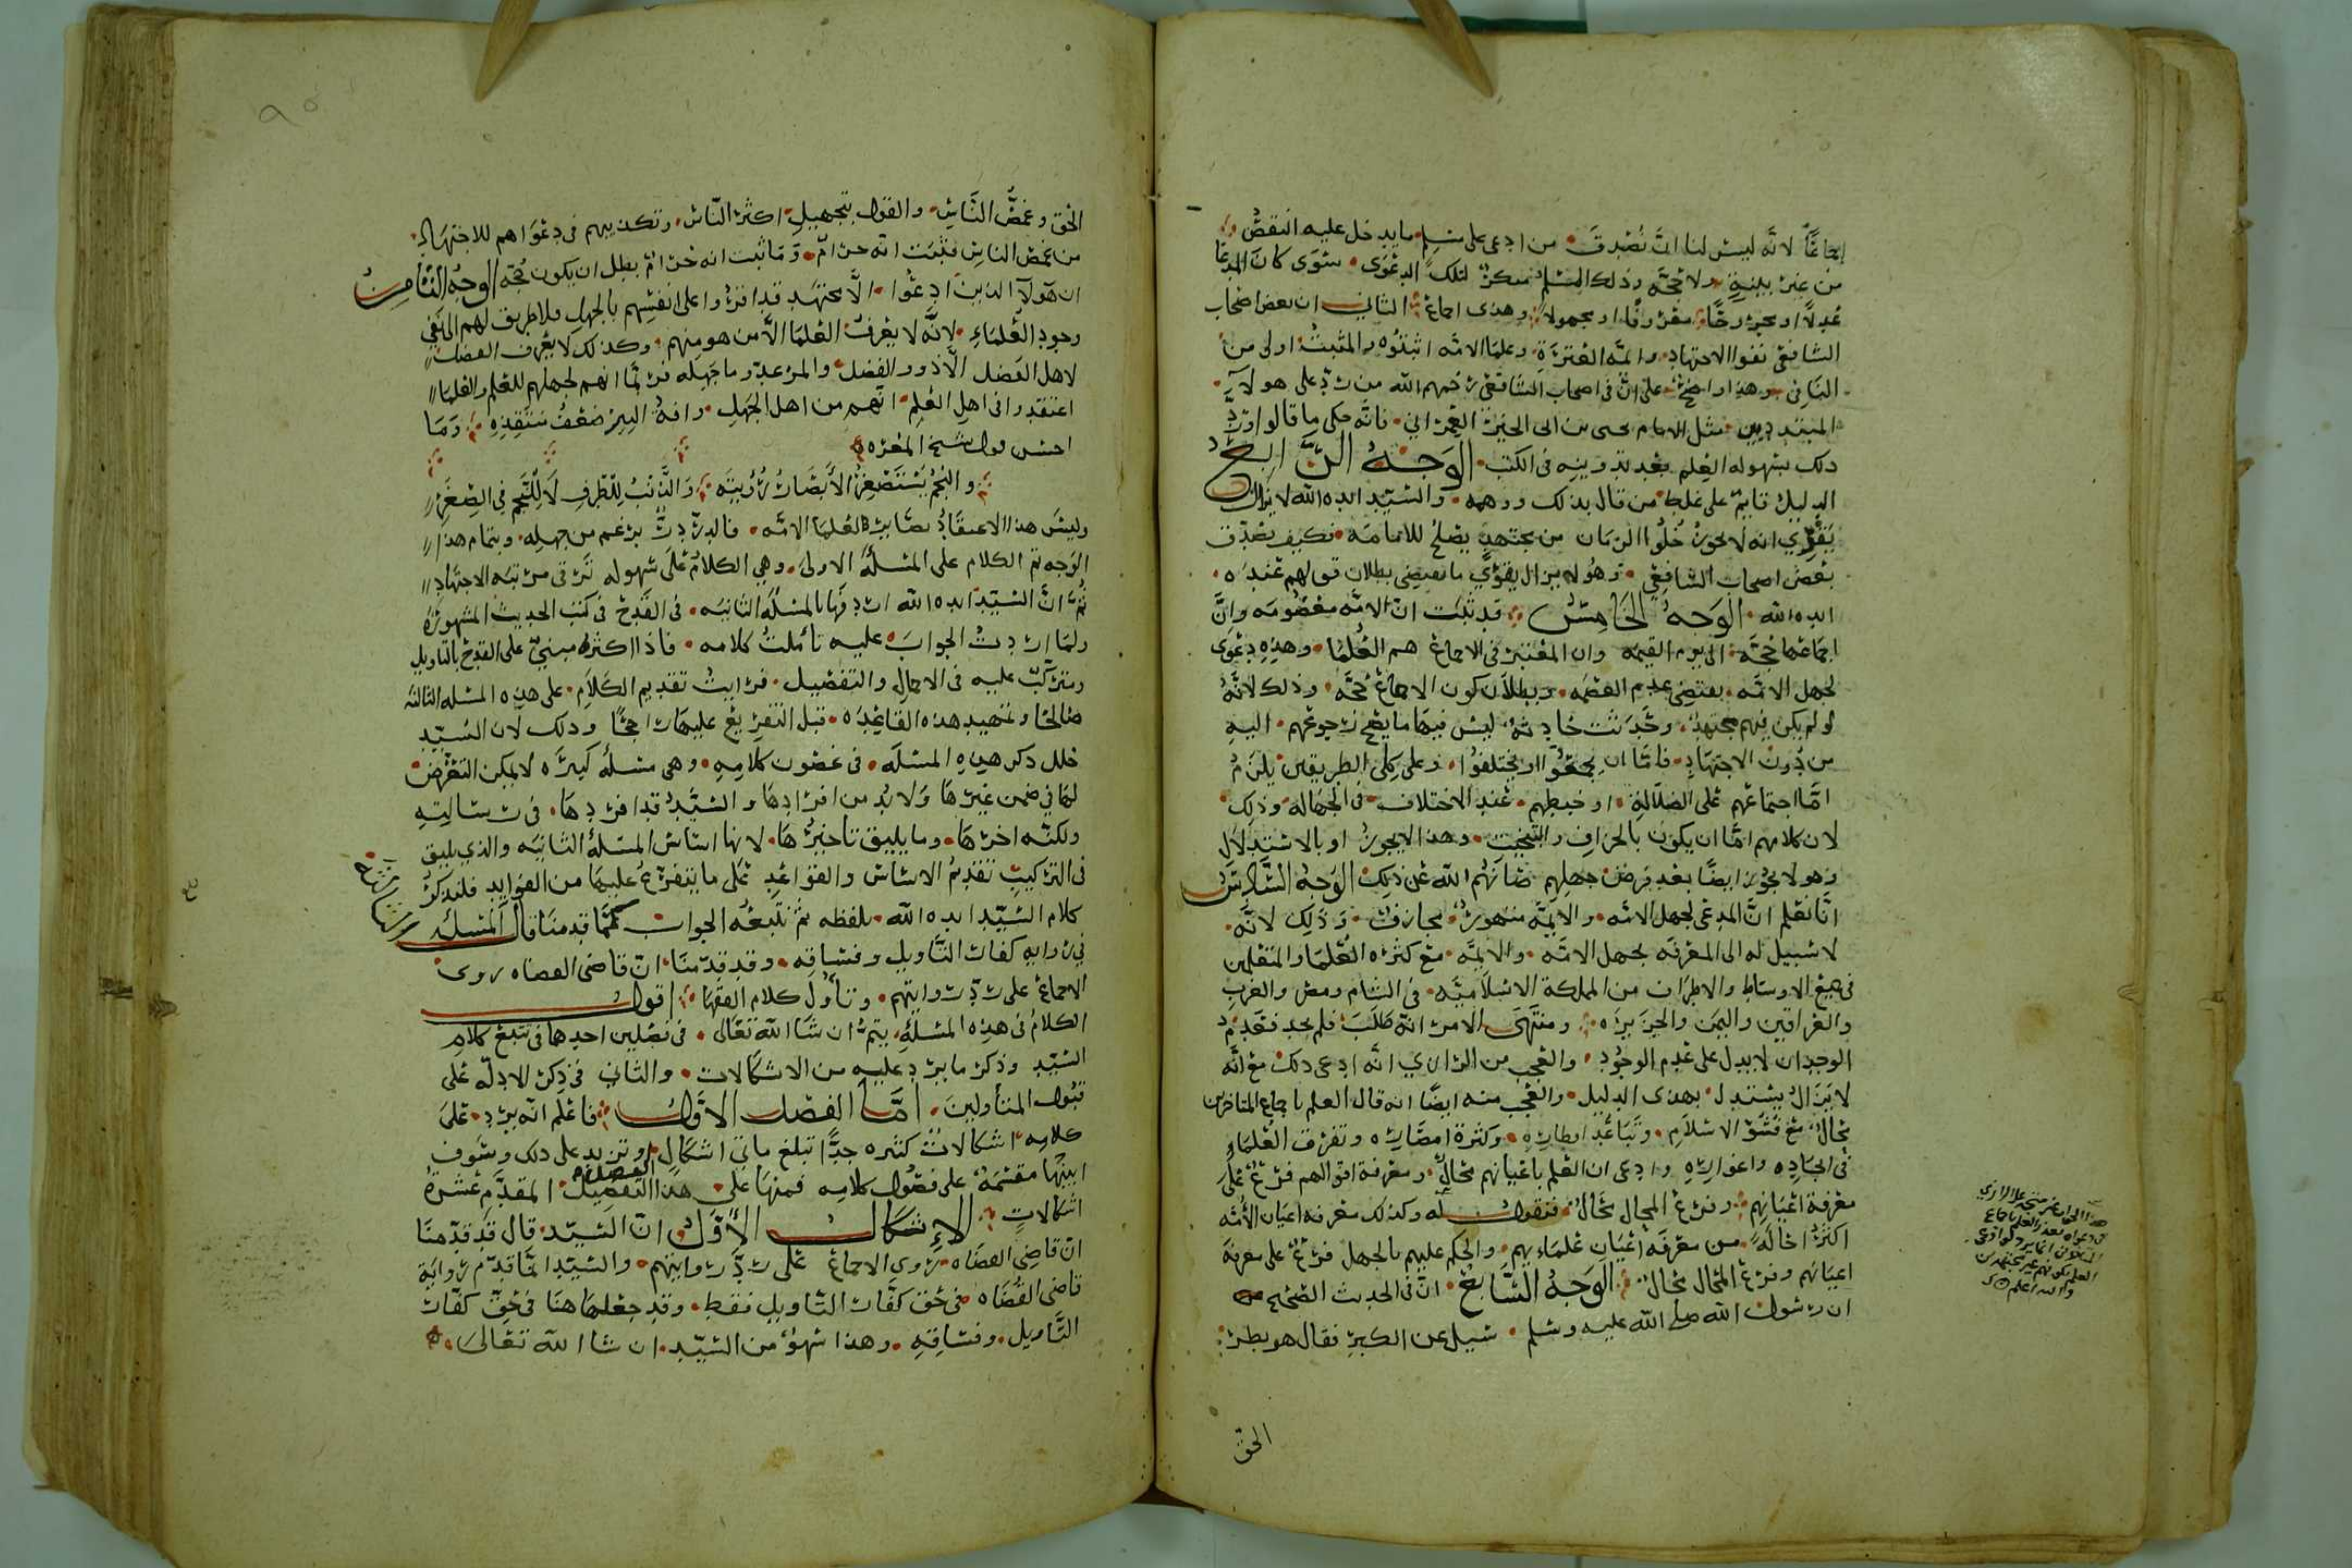 اجماعًا لانه ليس لنا ان نصدق من ادعى على مسلم ما يدخل عليه النقص
من غير بينة ولا حجة وذلك المسلم منكر لتلك الدعوى سوى كان المدعا
عدلًا او مجروحًا معروفًا او مجهولًا وهذى اجماع الثاني ان بعض اصحاب
الشافعي نفوا الاجتهاد وايمة العترة وعلما الامة اثبتوه والمثبت اولى من
النافي وهذا واضح على ان في اصحاب الشافعي رحمهم الله من رد على هولآء
المبتدين مثل الامام يحيى بن ابي الخير العمراني فانه حكى ما قالوا ورد
ذلك بسهولة العلم بعد تدوينه في الكتب الوجه الرابع
الدليل قايم على غلط من قال بذلك ووهمه والسيد ايده الله لا يزال
يقوي انه لا يجوز خلوا الزمان من مجتهد يصلح للامامة فكيف يصدق
بعض اصحاب الشافعي وهو لا يزال يقوي ما يقتضي بطلان قولهم عنده
ايده الله الوجه الخامس قد ثبت ان الامة معصومة وان
اجماعها حجة الى يوم القيمة وان المعتبر في الاجماع هم العلما وهذه دعوى
لجهل الامة يقتضي عدم العصمة وبطلان كون الاجماع حجة وذلك لانه
لو لم يكن فيهم مجتهد وحدثت حادثة ليس فيها ما يصح رجوعهم اليه
من دون الاجتهاد فاما ان يجمعوا او يختلفوا وعلى كلى الطريقين يلزم
اما اجتماعهم على الضلالة او خبطهم عند الاختلاف في الجهالة وذلك
لان كلامهم اما ان يكون بالجزاف والتبخيت وهذا لا يجوز او بالاستدلال
وهو لا يجوز ايضًا بعد فرض جهلهم صانهم الله عن ذلك الوجه السادس
انا نعلم ان المدعى لجهل الامة والايمة متهور مجازف وذلك لانه
لا سبيل له الى المعرفة بجهل الامة والايمة مع كثرة العلما والمتعلمين
في جميع الاوساط والاطراف من المملكة الاسلامية في الشام ومصر والغرب
والعراقين واليمن والجزيرة ومنتهى الامر انه طلب فلم يجد فعدم
الوجدان لا يدل على عدم الوجود والعجب من الرازي انه ادعى ذلك مع انه
لا يزال يستدل بهذى الدليل والعجب منه ايضًا انه قال العلم باجماع المتاخرين
محال مع فشو الاسلام وتباعد اقطاره وكثرة امصاره وتفرق العلماء
في انجاده واغواره وادعى ان العلم باعيانهم محال ومعرفة اقوالهم فرع على
معرفة اعيانهم وفرع المحال محال فنقول له وكذلك معرفة اعيان الامة
اكثر احالة من معرفة اعيان علمايهم والحكم عليهم بالجهل فرع على معرفة
اعيانهم وفرع المحال محال الوجه السابع ان في الحديث الصحيح
ان رسول الله صلى الله عليه وسلم سيل عن الكبر فقال هو بطر
الحق
والله اعلم
الحق وغمص الناس والقول بتجهيل اكثر الناس وتكذيبهم في دعواهم للاجتهاد
من غمص الناس فثبت انه حرام وما ثبت انه حرام بطل ان يكون حجة الوجه الثامن
ان هولآ الذين ادعوا الا مجتهد قد اقروا على انفسهم بالجهل فلا طريق لهم الى نفي
وجود العلماء لانه لا يعرف العلما الا من هو منهم وكذلك لا يعرف الفضل
لاهل الفضل الا ذوو الفضل والمرء عدو ما جهله فربما انهم لجهلهم للعلم والعلما
اعتقدوا في اهل العلم انهم من اهل الجهل وافة التبر ضعف منتقده وما
احسن قول شيخ المعرة
والنجم يستصغر الابصار رؤيته والذنب للطرف لا للنجم في الصغر
وليس هذا الاعتقاد بضاير لعلما الامة فالدر در برغم من جهله وبتمام هذا
الوجه تم الكلام على المسلة الاولى وهي الكلام على سهولة ترقى مرتبة الاجتهاد
ثم ان السيد ايده الله اردفها بالمسلة الثانية في القدح في كتب الحديث المشهورة
ولما اردت الجواب عليه تاملت كلامه فاذا اكثره مبني على القدح بالتاويل
ومتركب عليه في الاجمال والتفصيل فرايت تقديم الكلام على هذه المسلة الثالثة
صالحًا وتمهيد هذه القاعدة قبل التفريع عليها راجحًا وذلك لان السيد
خلل ذكر هذه المسلة في غضون كلامه وهي مسلة كبيرة لا يمكن التعرض
لها في ضمن غيرها ولا بد من افرادها والسيد قد افردها في رسالته
ولكنه اخرها وما يليق تاخيرها لانها اساس المسلة الثانية والذي يليق
في التركيب تقديم الاساس والقواعد على ما يتفرع عليها من الفوايد فلنذكر
كلام السيد ايده الله بلفظه ثم نتبعه الجواب كما قدمنا قال المسلة الثالثة
في رواية كفار التاويل وفساقه وقد قدمنا ان قاضي القضاه روى
الاجماع على رد روايتهم وتأول كلام الفقها اقول
الكلام في هذه المسلة يتم ان شا الله تعالى في فصلين احدهما في تتبع كلام
السيد وذكر ما يرد عليه من الاشكالات والثاني في ذكر الادلة على
قبول المتأولين اما الفصل الاول فاعلم انه يرد على
كلامه اشكالات كثيرة جدًّا تبلغ مأتى اشكال وتزيد على ذلك وسوف
ابينها مقسمة على فصول كلامه فمنها على هذا الفصل المقدم عشرة
اشكالات الاشكال الاول ان السيد قال قد قدمنا
ان قاضي القضاه روى الاجماع على رد روايتهم والسيد انما قدم رواية
قاضي القضاه في حق كفار التاويل فقط وقد جعلها هنا في حق كفار
التاويل وفساقه وهذا سهو من السيد ان شا الله تعالى